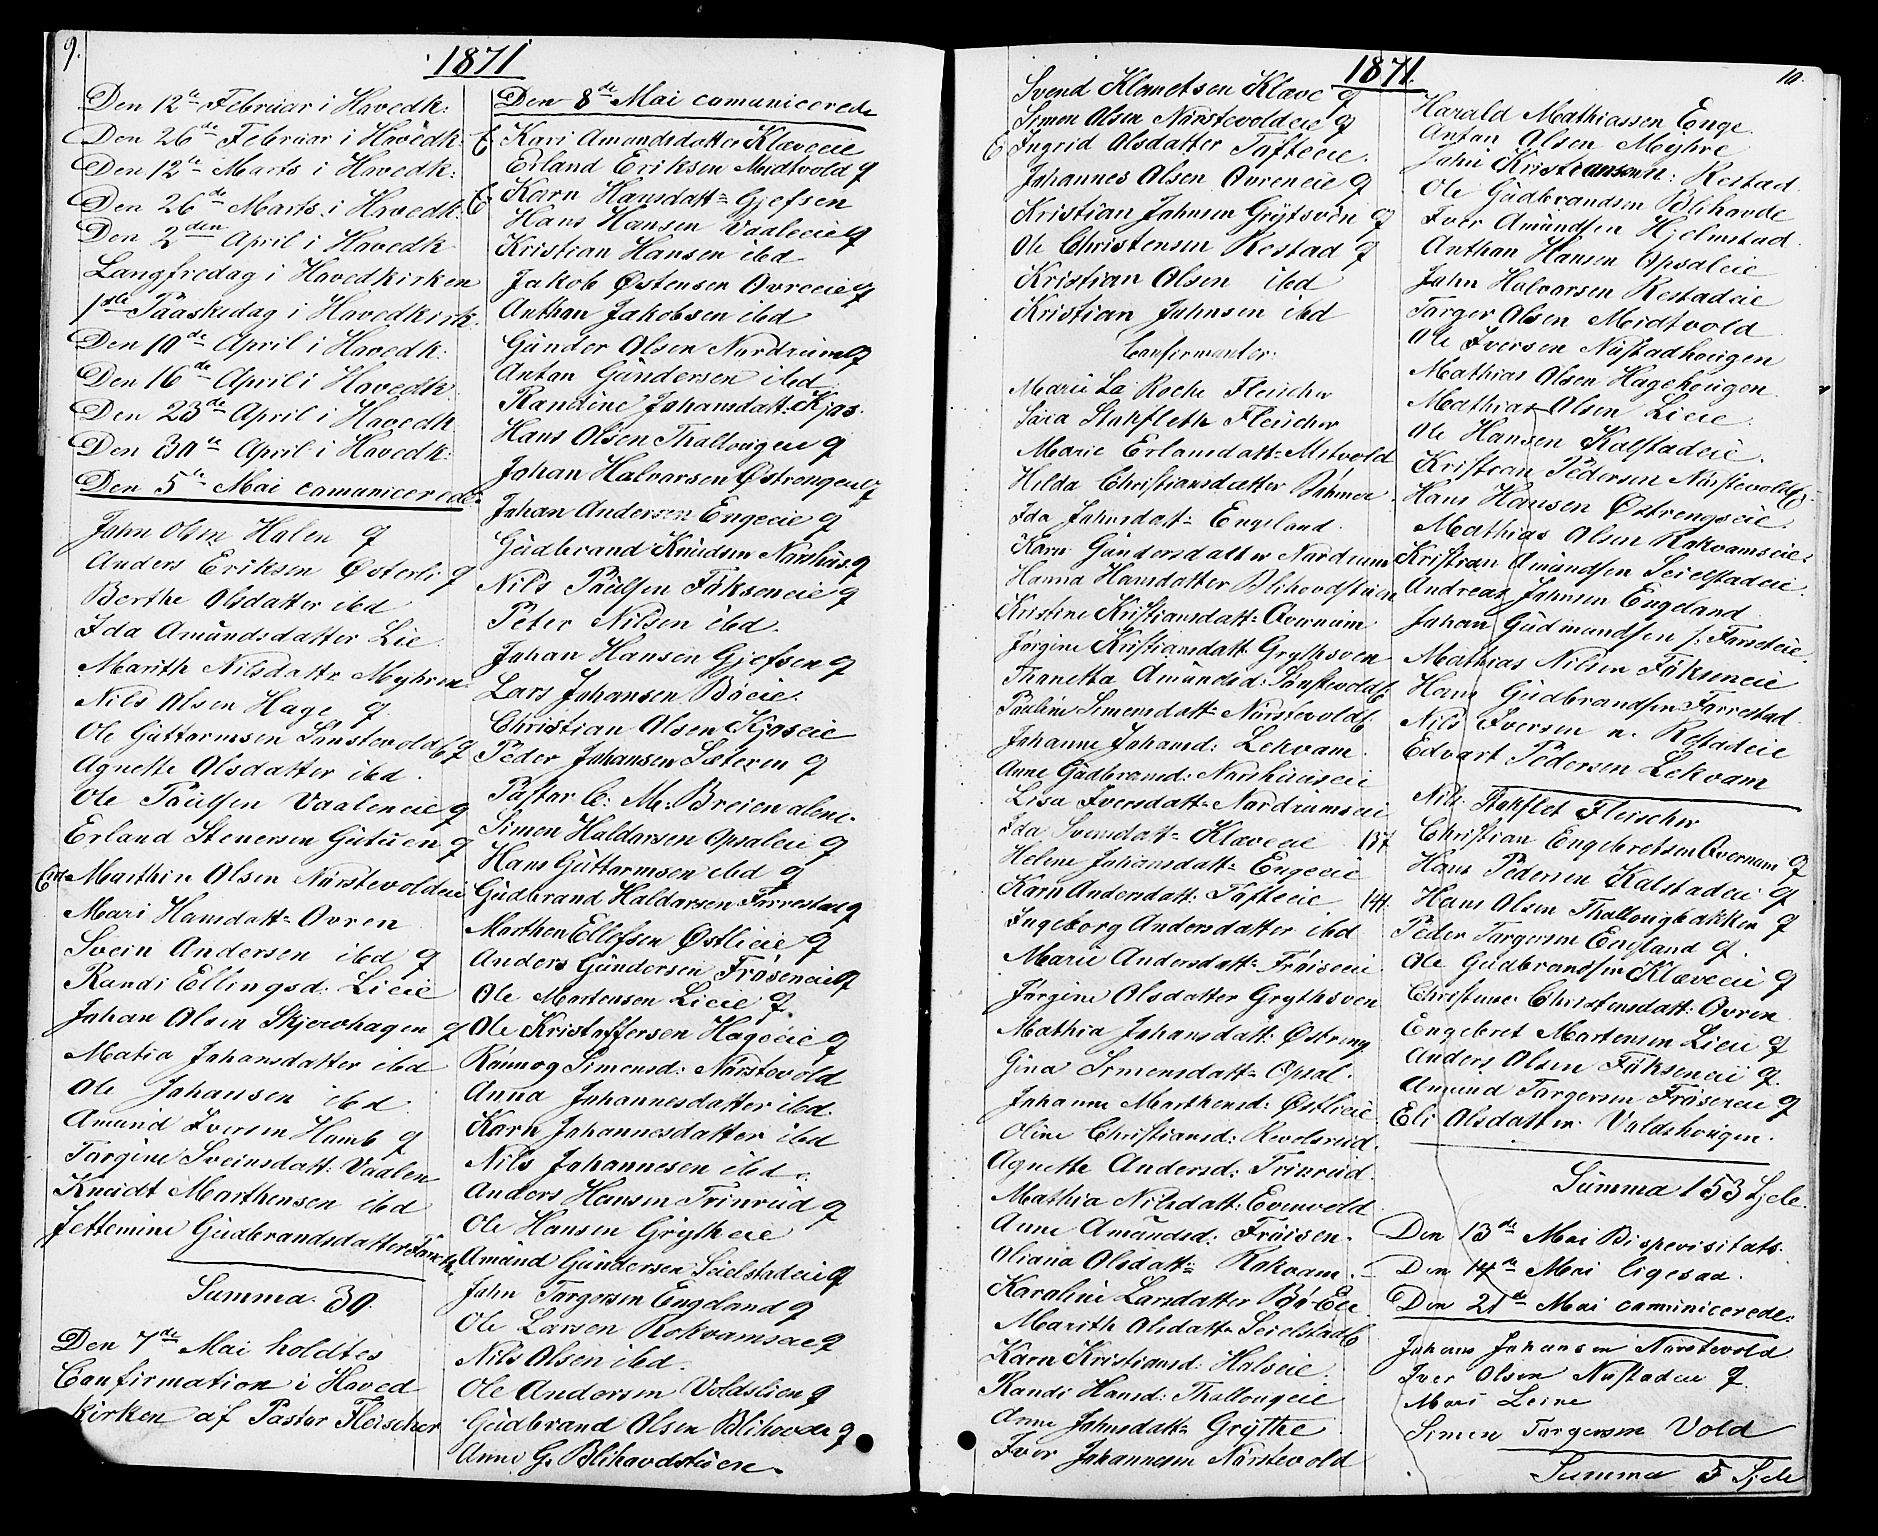 9.
1871
Den 12te Februar i Hovedk:
Den 26de Februar i Hovedk:
Den 12te Marts i Hovedk:
Den 26de Marts i Hovedk.
Den 2den April i Hovedk
Langfredag i Hovedkirken
1ste Paaskedag i Hovedkirk.
Den 10de April i Hovedk:
Den 16de April i Hovedk.
Den 23de April i Hovedk
Den 30te April i Hovedk:
Den 5te Mai comunicerede
John Olsen Holen g
Anders Eriksen Østerli g
Berthe Olsdatter ibd
Ida Amundsdatter Lie
Marith Nilsdattr Myhren
Nils Olsen Hage g
Ole Guttormsen g
Agnethe Olsdatter ibd.
Ole Poulsen Vaaleneie g
Erland Stenersen g
Marthin Olsen Nörstevoldeie
Mari Hansdatt= Ovren
Svein Andersen ibd g
Randi Ellingsd: Lieie
Johan Olsen Skjewhagen g
Matia Johansdatter ibd
Ole Johansen ibd.
Amund Iversen Hamb g
Torgine Sveinsdatt: Vaalen
Knudt Marthensen ibd
Jettemine Gudbrandsdatter
Summa. 30.
Den 7de Mai holdtes
Confirmation i Hoved
kirken af Pastor Fleischer
Den 8de Mai comunicerede
Kari Amundsdatter Klaveeie
Erland Eriksen Midtvold g
Karn Hansdatt= Gjefsen
Hans Hansen Vaaleeie g
Kristian Hansen ibd
Jakob Østensen Ovreeie g
Anthon Jakobsen ibd
Gunder Olsen Nordrum g
Anton Gundersen ibd
Randine Johansdatt: Kjos.
Hans Olsen Thallougen g
Johan Halvorsen Østrengen g
Johan Andersen Engeeie g
Gudbrand Knudsen Norshus g
Nils Poulsen Fokseneie g
Peter Nilsen ibd.
Johan Hansen Gjefsen g
Lars Johansen Böeie.
Christian Olsen Kjoseie
Peder Johansen Sæteren g
Pastor C: M: Breien alene.
Simen Haldorsen Opsaleie g
Hans Guttormsen ibd g
Gudbrand Haldorsen Forrestad g
Morthen Ellefsen Østlieie g
Anders Gundersen Fröseneie g
Ole Mortensen Lieie g.
Ole Kristoffersen Hageeie g
Rönnog Simensd: Nörstevold
Anna Johannesdatter ibd.
Karn Johannesdatter ibd
Nils Johannesen ibd.
Anders Hansen Trinrud g
Ole Hansen Grytheeie
Amund Gundersen Seielstadeie g
John Torgersen Engeland g
Ole Larsen Rokvamseie g
Nils Olsen ibd.
Ole Andersen Voldslien g
Gudbrand Olsen Blihovde g
Anne G. Blihovdstuen.
1871.
10.
Svend Klemetsen Klave g
Simon Olsen Nörstevoldeie g
Ingrid Olsdatter Tofteeie.
Johannes Olsen Ovreneie g
Kristian Johnsen Grytsvin g
Ole Christensen Restad g
Kristian Olsen ibd
Kristian Johnsen ibd
Confirmanter:
Marie La Roche Fleischer
Sara Stokfleth Fleischer
Marie Erlansdatt= Mitvold
Hilda Christiansdatter Böhmer.
Ida Johnsdatt= Engeland.
Karn Gundersdatter Nordrum
Hanna Hansdatter Blihovdstuen
Kristine Kristiansdatt= Overnum
Jörgine Kristiansdatt Grythsven
Thonetta Amundsd:
Pauline Simensdatt= Nörstevold
Johanne Johansd: Lekvam.
Anne Gudbransd: Norshuuseie
Lisa Iversdatt= Nordrumseie
Ida Svensdatt= Klaveeie 137
Helene Johansdatt= Engeeie
Karn Andersdatt: Tofteeie 141.
Ingeborg Andersdatter ibd
Marie Andersdatt= Fröiseeie
Jörgine Olsdatter Grythsven
Mathia Johansdatt: Østreng
Gina Simensdatt= Opsal.
Johanne Marthensd: Østlieie
Oline Christiansd: Revolsrud.
Agnethe Andersd: Trinrud.
Mathia Nilsdatt: Evenvold
Anne Amundsd: Fröisen.
Oliana Olsdatt= Rokvam.
Karoline Larsdatter Bö-Eie
Marith Olsdatt= Seielstad
Karn Kristiansd: Holseie.
Randi Hansd: Thallougeie
Anne Johnsdatt= Grythe
Iver Johannesen Nörstevold
Harald Mathiassen Enge.
Anton Olsen Myhre
John Kristiansen: Restad.
Ole Gudbrandsen Blihovde
Iver Amundsen Hjelmstad.
Anthon Hansen Opsaleie
John Halvorsen Restadeie
Torger Olsen Meidtvold
Ole Iversen Nustadhougen
Mathias Olsen Hagehougen.
Mathias Olsen Lieie.
Ole Hansen Kalstadeie.
Kristian Pedersen Nörstevold
Hans Hansen Østrengseie.
Mathias Olsen Rokvamseie.
Kristian Amundsen Seielstadeie.
Andreas Johnsen Engeland.
Johan Gudmundsen f. Forseteie.
Mathias Nilsen Fokseneie
Hans Gudbrandsen Forrestad.
Nils Iversen n. Restadeie
Edvart Pedersen Lekvam
Nils Stokflet Fleischer
Christian Engebretsen Overnum g
Hans Pedersen Kalstadeie g
Hans Olsen Thallougbakken g
Peder Torgersen Engeland g.
Ole Gudbrandsen Klaveeie g
Christiane Christensdatt: Ovren
Engebret Mortensen Lieie g
Anders Olsen Fokseneie g.
Amund Torgersen Fröseneie g
Eli Olsdatter Voldshougen.
Summa 153 Sjele.
Den 13de Mai Bispevisitats.
Den 14de Mai ligesaa.
Den 21de Mai comunicerede.
Johans Johansen Nörstevold
Iver Olsen Nustadeie g.
Mari Leine
Simen Torgersen Vold
Summa 5 Sjele